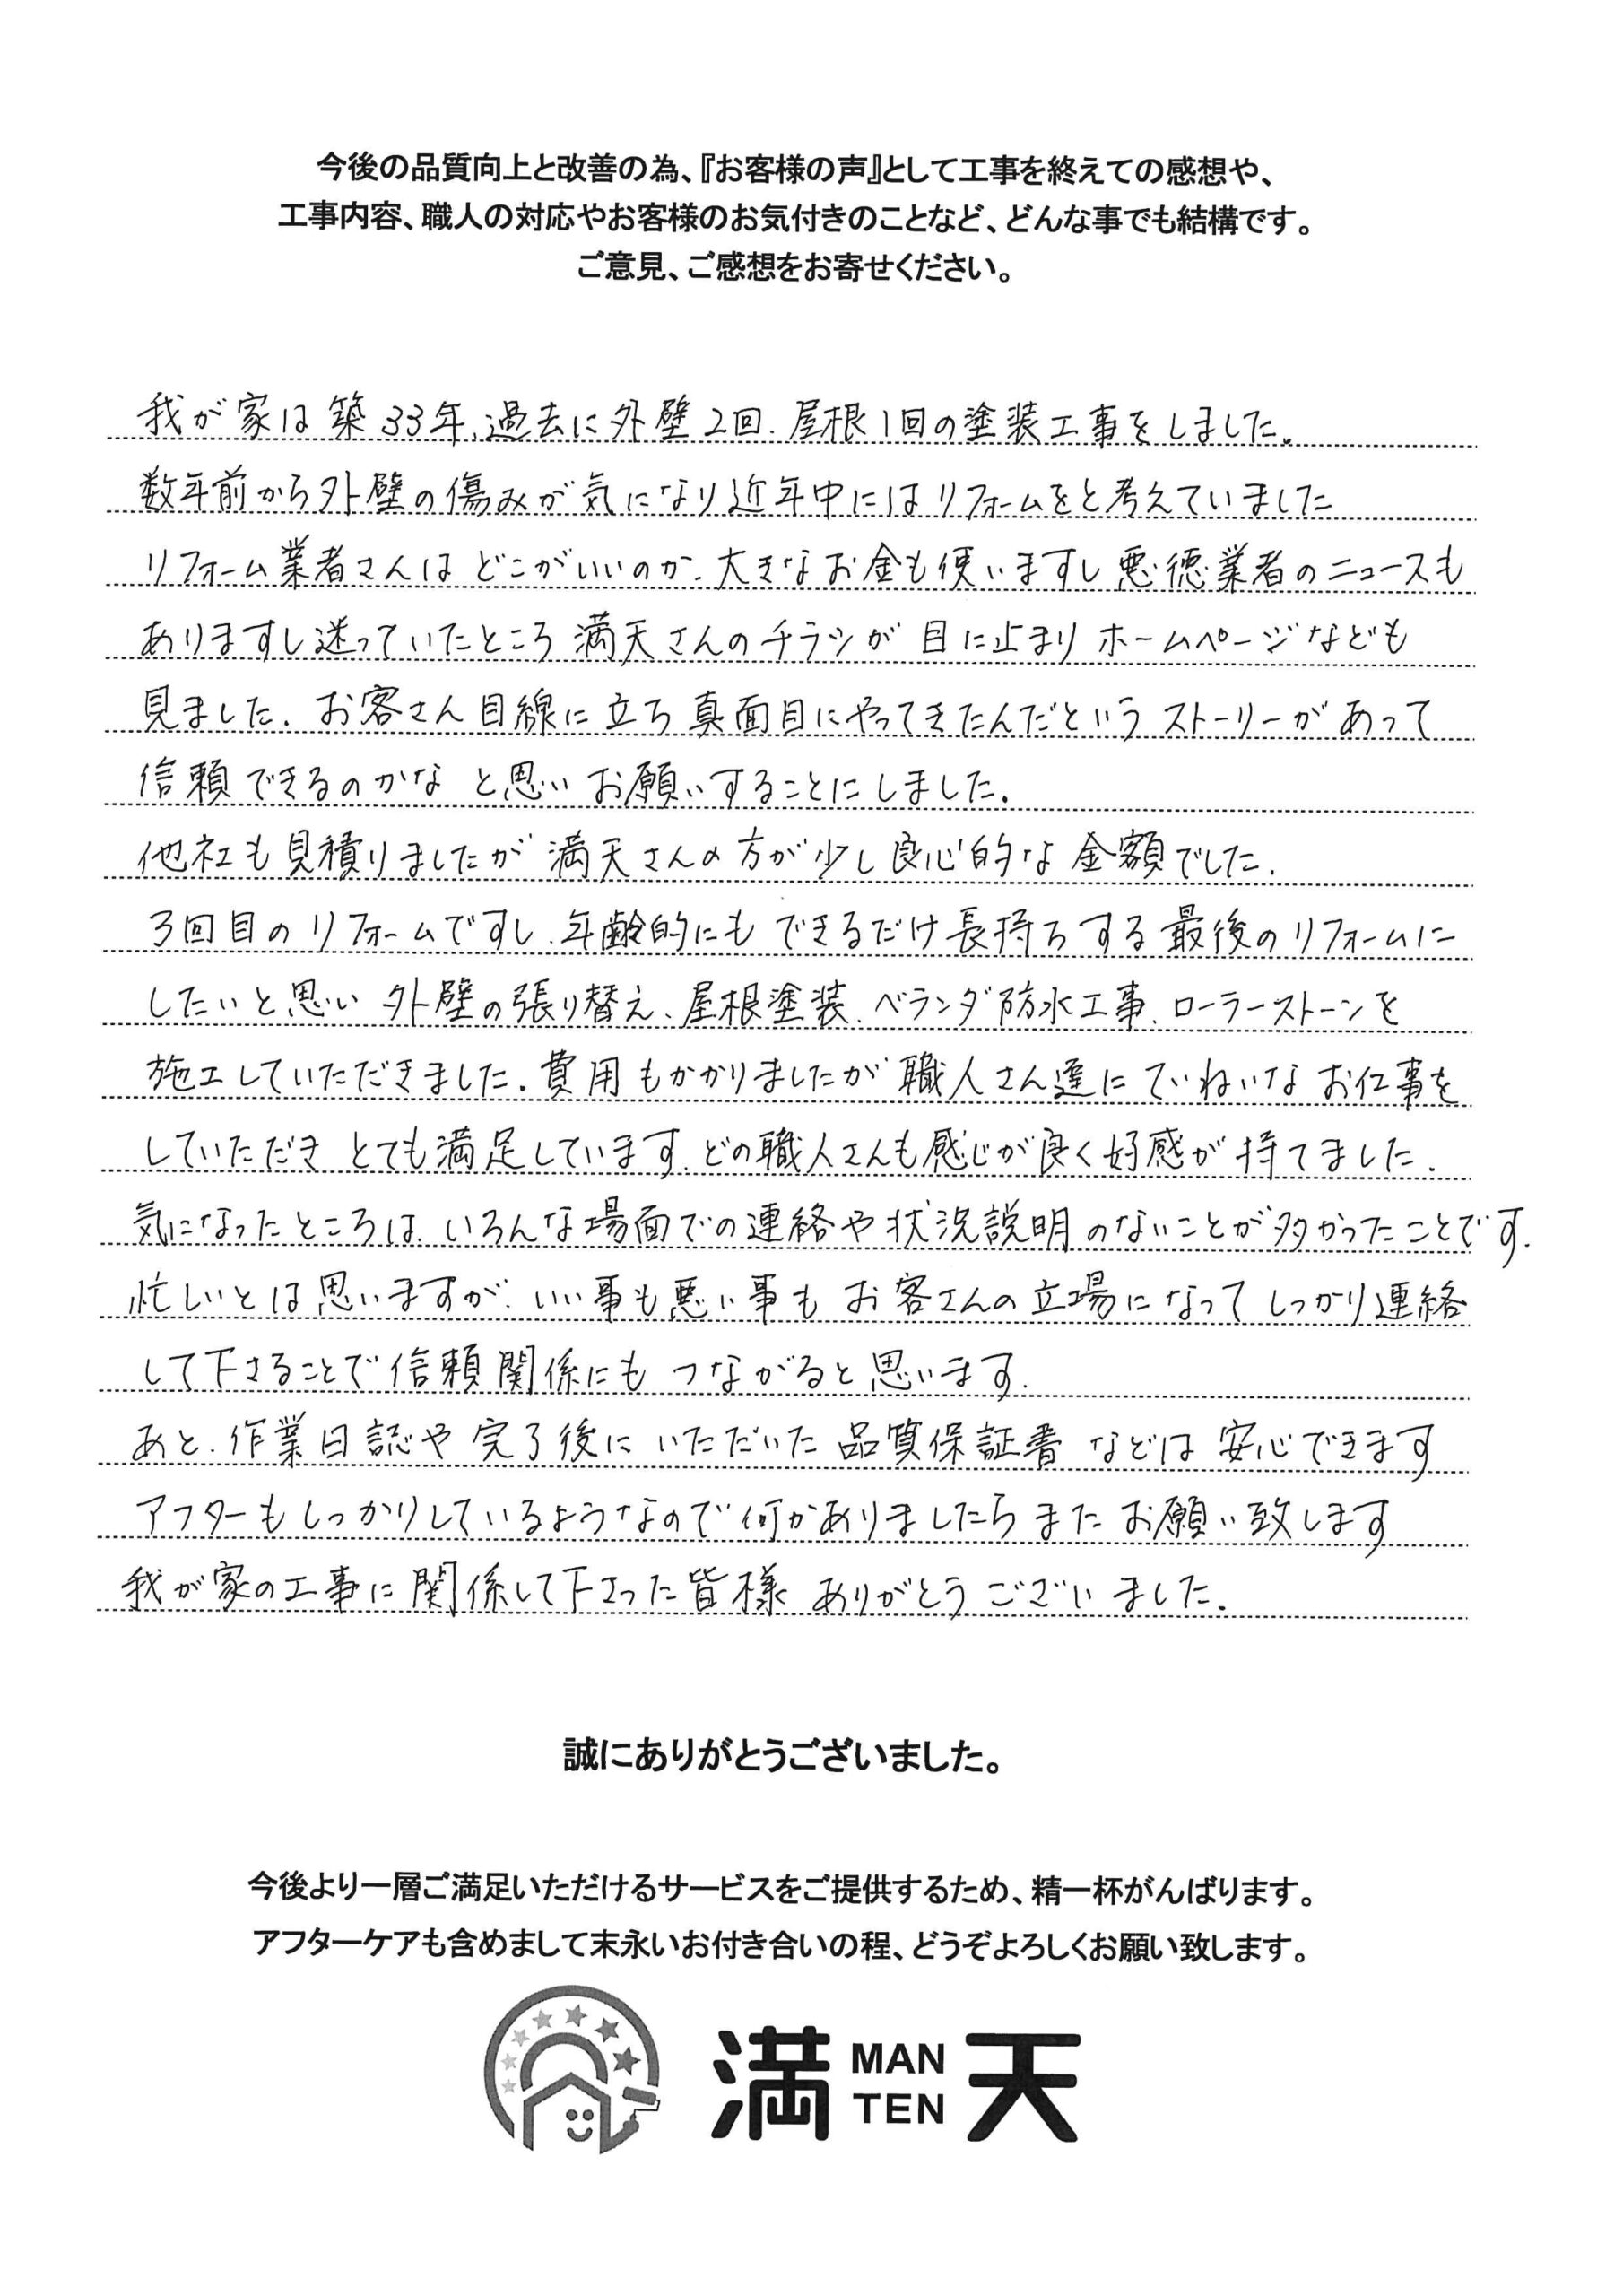 今後の品質向上と改善の為、『お客様の声』として工事を終えての感想や、
工事内容、職人の対応やお客様のお気付きのことなど、どんな事でも結構です。
ご意見、ご感想をお寄せください。
我が家は築33年、過去に外壁2回、屋根1回の塗装工事をしました。
数年前から外壁の傷みが気になり近年中にはリフォームをと考えていました
リフォーム業者さんはどこがいいのか、大きなお金も使いますし悪徳業者のニュースも
ありますし迷っていたところ満天さんのチラシが目に止まりホームページなども
見ました。お客さん目線に立ち真面目にやってきたんだというストーリーがあって
信頼できるのかなと思いお願いすることにしました。
他社も見積りましたが満天さんの方が少し良心的な金額でした。
3回目のリフォームですし、年齢的にもできるだけ長持ちする最後のリフォームに
したいと思い外壁の張り替え、屋根塗装、ベランダ防水工事、ローラーストーンを
施工していただきました。費用もかかりましたが職人さん達にていねいなお仕事を
していただきとても満足しています。どの職人さんも感じが良く好感が持てました。
気になったところは、いろんな場面での連絡や状況説明のないことが多かったことです。
忙しいとは思いますが、いい事も悪い事もお客さんの立場になってしっかり連絡
して下さることで信頼関係にもつながると思います。
あと、作業日誌や完了後にいただいた品質保証書などは安心できます
アフターもしっかりしているようなので何かありましたらまたお願い致します
我が家の工事に関係して下さった皆様ありがとうございました。
誠にありがとうございました。
今後より一層ご満足いただけるサービスをご提供するため、精一杯がんばります。
アフターケアも含めまして末永いお付き合いの程、どうぞよろしくお願い致します。
満 MAN TEN 天